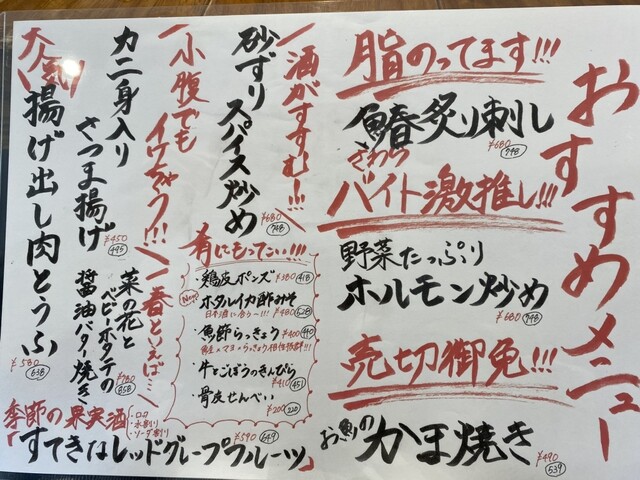 おすすめメニュー
脂のってます!!!
鰆炙り刺し
さわら
¥680
748
バイト激推し!!!
野菜たっぷり
ホルモン炒め
¥680
748
売切御免!!!
お魚の
かま焼き
¥490
539
酒がすすむ!!!
砂ずり
スパイス炒め
¥680
748
小腹でも
イケちゃう!!!
カニ身入り
さつま揚げ
¥450
495
大人気
揚げ出し肉とうふ
¥580
638
一番といえば…
菜の花と
ベビーホタテの
醤油バター焼き
¥780
858
肴にもってこい!!!
・鶏皮ポンズ ¥380 418
New
・ホタルイカ酢みそ
日本酒に合う〜!!! ¥480 528
・魚節らっきょう ¥400 440
魚×マヨ×らっきょう相性抜群!!!
・牛とごぼうのきんぴら
¥410 451
・骨皮せんべい
¥200 220
季節の果実酒
・ロック
・水割り
・ソーダ割り
¥590 649
「すてきなレッドグレープフルーツ」